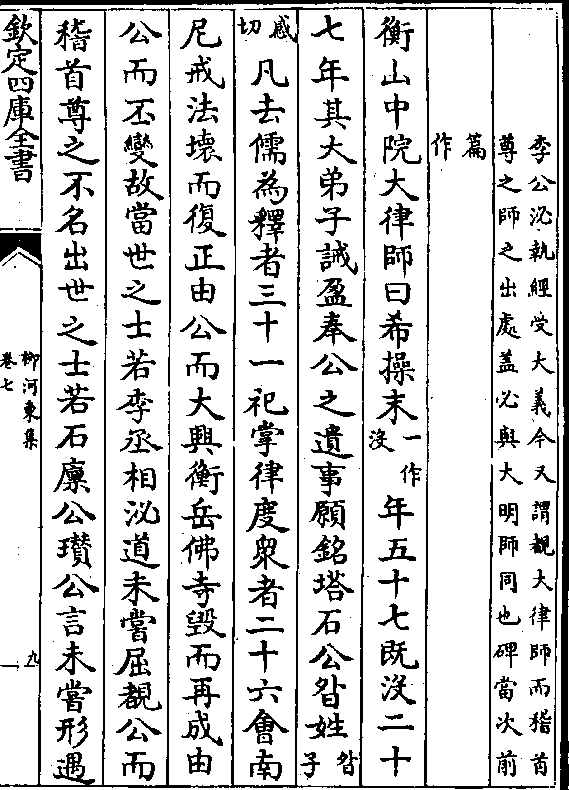 李公泌執經受大義今又謂覩大律師而稽首
尊之師之出處蓋必與大明師同也碑當次前
篇
作
衡山中院大律師曰希操末一作沒年五十七既沒二十
七年其大弟子誡盈奉公之遺事願銘塔石公昝姓昝子
感切凡去儒為釋者三十一祀掌律度衆者二十六會南
尼戒法壞而復正由公而大興衡岳佛寺毀而再成由
公而丕變故當世之士若李丞相泌道未嘗屈覩公而
稽首尊之不名出世之士若石廩公瓚公言未嘗形遇
欽定四庫全書
柳河東集
卷七
九